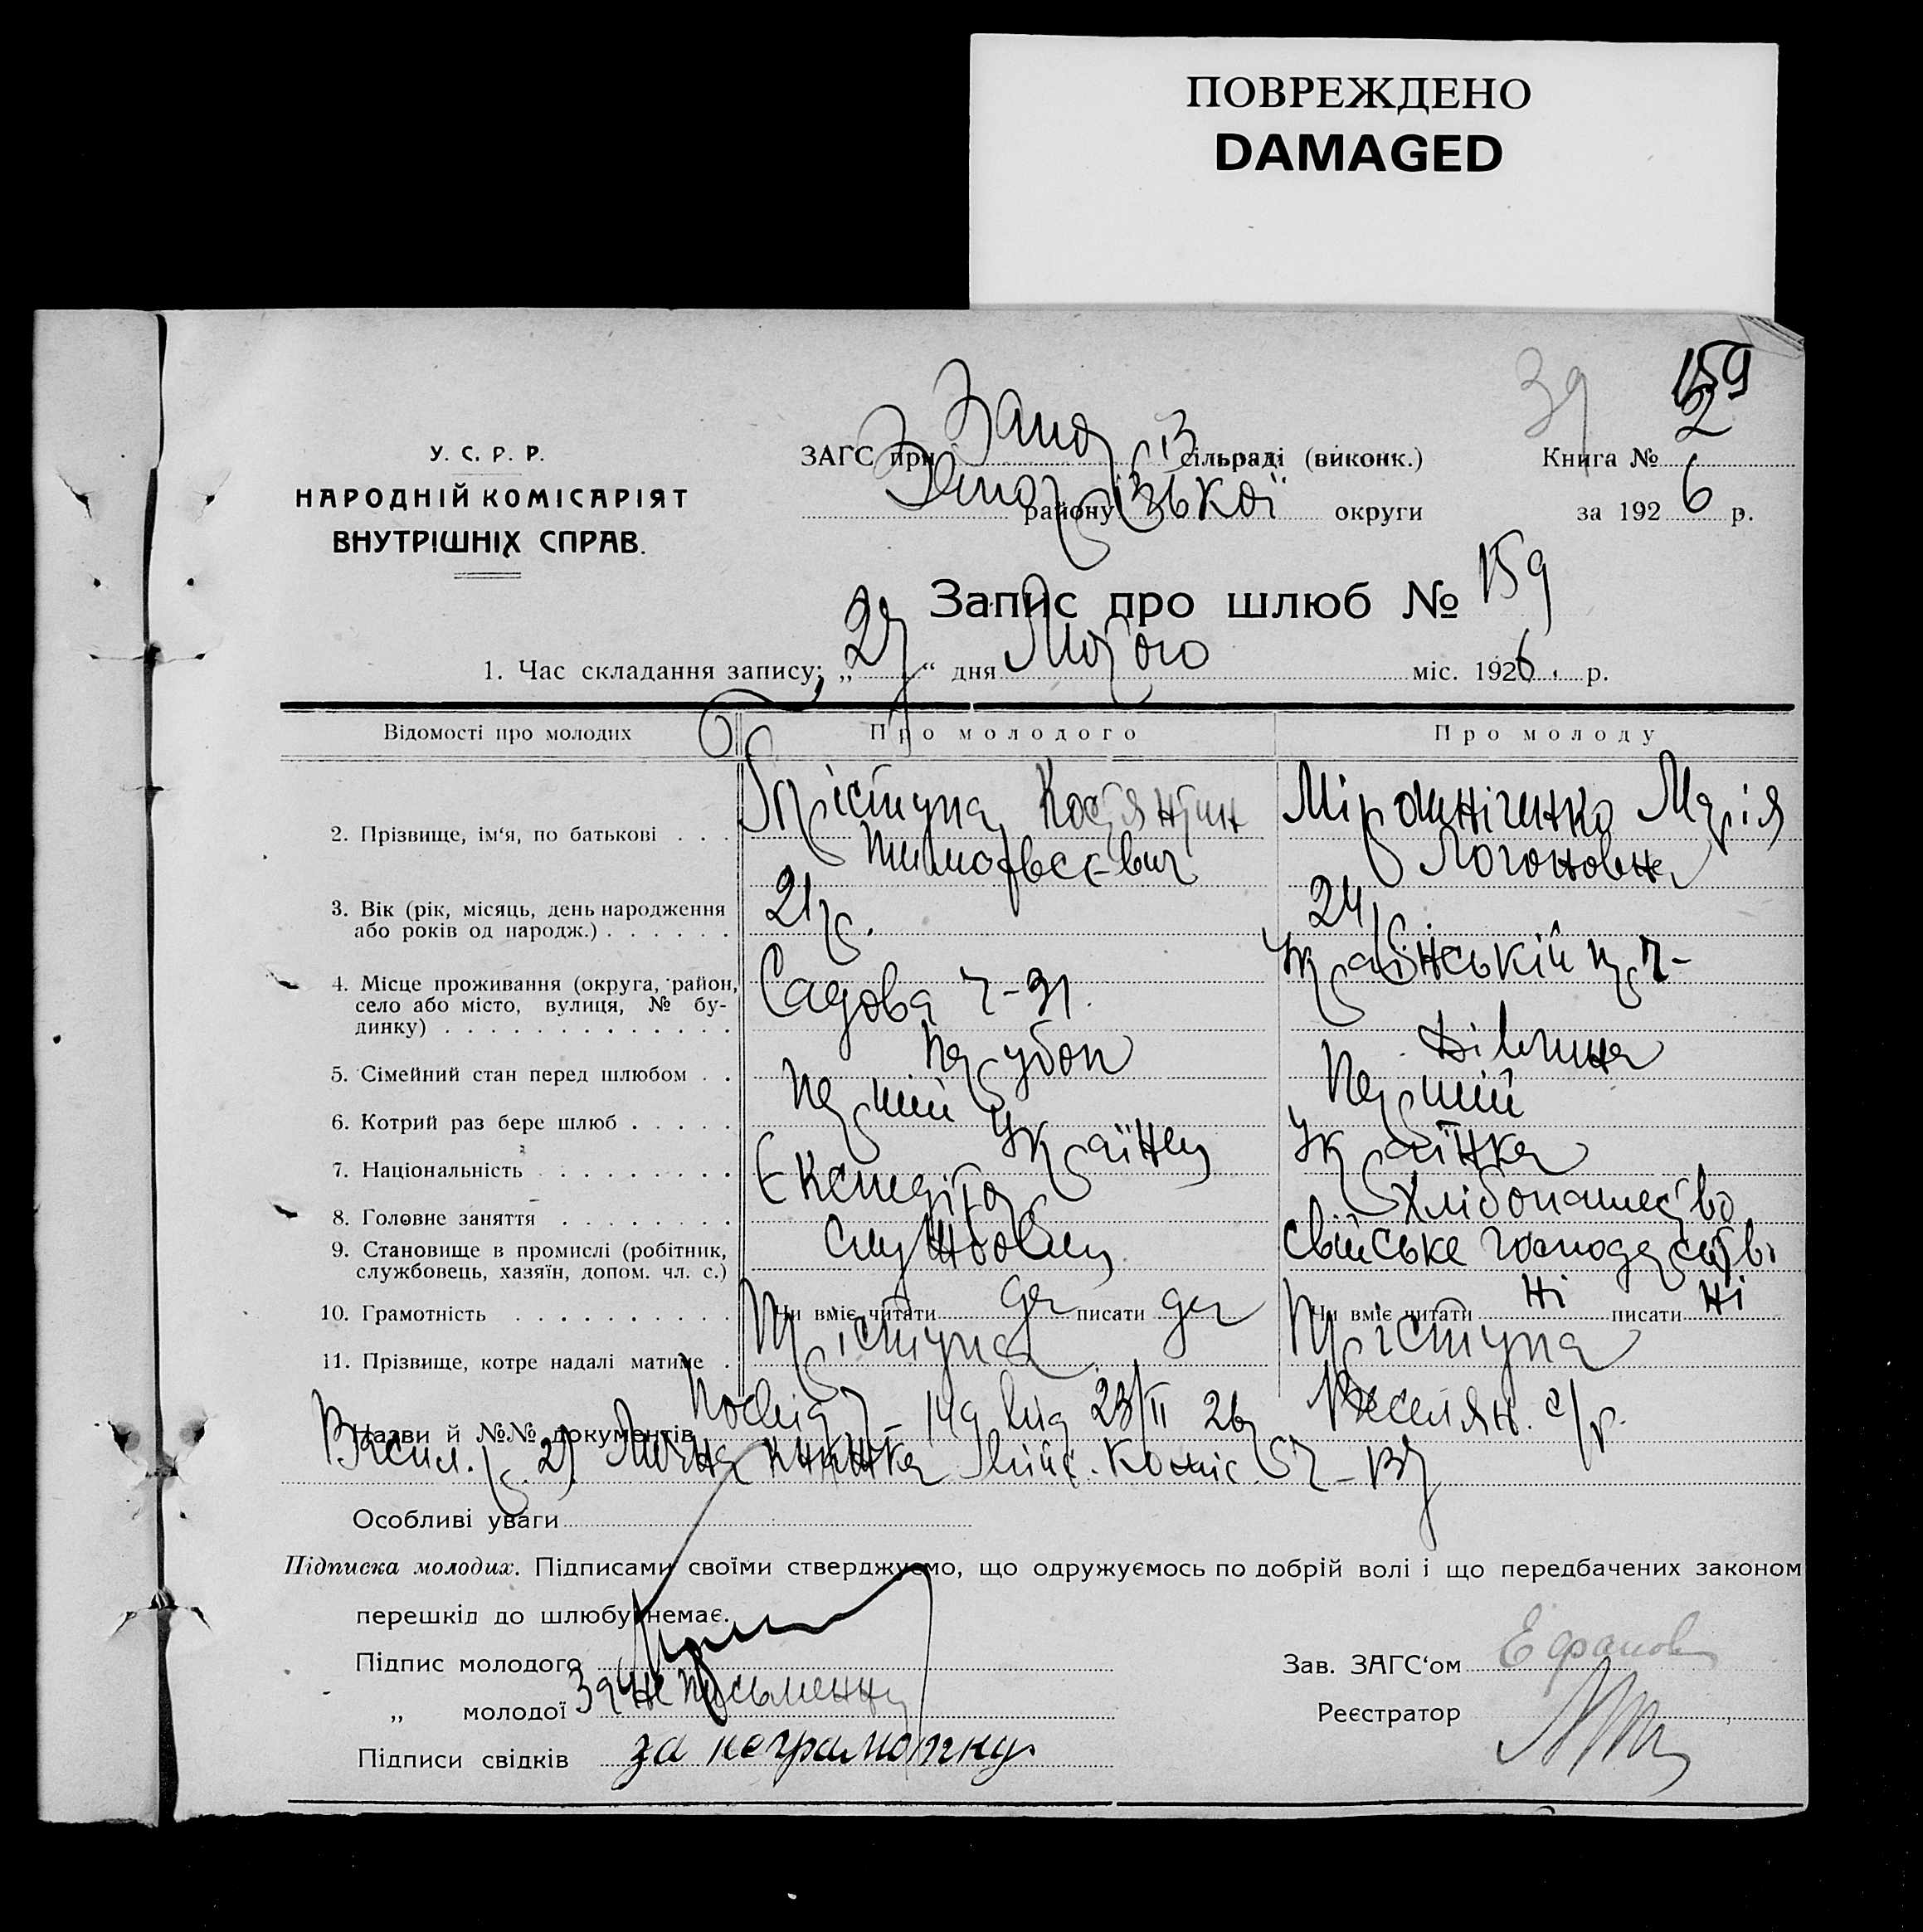 ПОВРЕЖДЕНО
DAMAGED
39
159
У. С. Р. Р.
НАРОДНІЙ КОМІСАРІЯТ
ВНУТРІШНІХ СПРАВ.
ЗАГС при Запоріз сільраді (виконк.)
Книга № 2
району Запорізької округи
за 1926 р.
Запис про шлюб № 159
1. Час складання запису; „27“ дня Лютого міс. 1926 р.
Відомості про молодих
Про молодого
Про молоду
2. Прізвище, ім‘я, по батькові . . .
Пріступа Костянтин
Тимофеєвич
Марія
3. Вік (рік, місяць, день народження
або років од народж.) . . . . . .
21 р.
24 р.
4. Місце проживання (округа, район,
село або місто, вулиця, № бу-
динку) . . . . . . . . . . . . .
Садова ч-31.
5. Сімейний стан перед шлюбом . .
Парубок
Дівчина
6. Котрий раз бере шлюб . . . . .
Перший
Перший
7. Національність . . . . . . . . .
Українец
Українка
8. Головне заняття . . . . . . . .
Хлібопашество
9. Становище в промислі (робітник,
службовець, хазяїн, допом. чл. с.)
Службовец
10. Грамотність . . . . . . . . . .
Чи вміє читати да писати да
Чи вміє читати ні писати ні
11. Прізвище, котре надалі матиме .
Пріступа
Пріступа
Назви й №№ документів Посвід ч- 149 від 23/II 26 Веселян. с/р.
Василь. р. 2)
Особливі уваги
Підписка молодих. Підписами своїми стверджуємо, що одружуємось по добрій волі і що передбачених законом
перешкід до шлюбу немає.
Підпис молодого
„ молодої За неписьменну
Підписи свідків за неграмотную
Зав. ЗАГС‘ом
Реєстратор